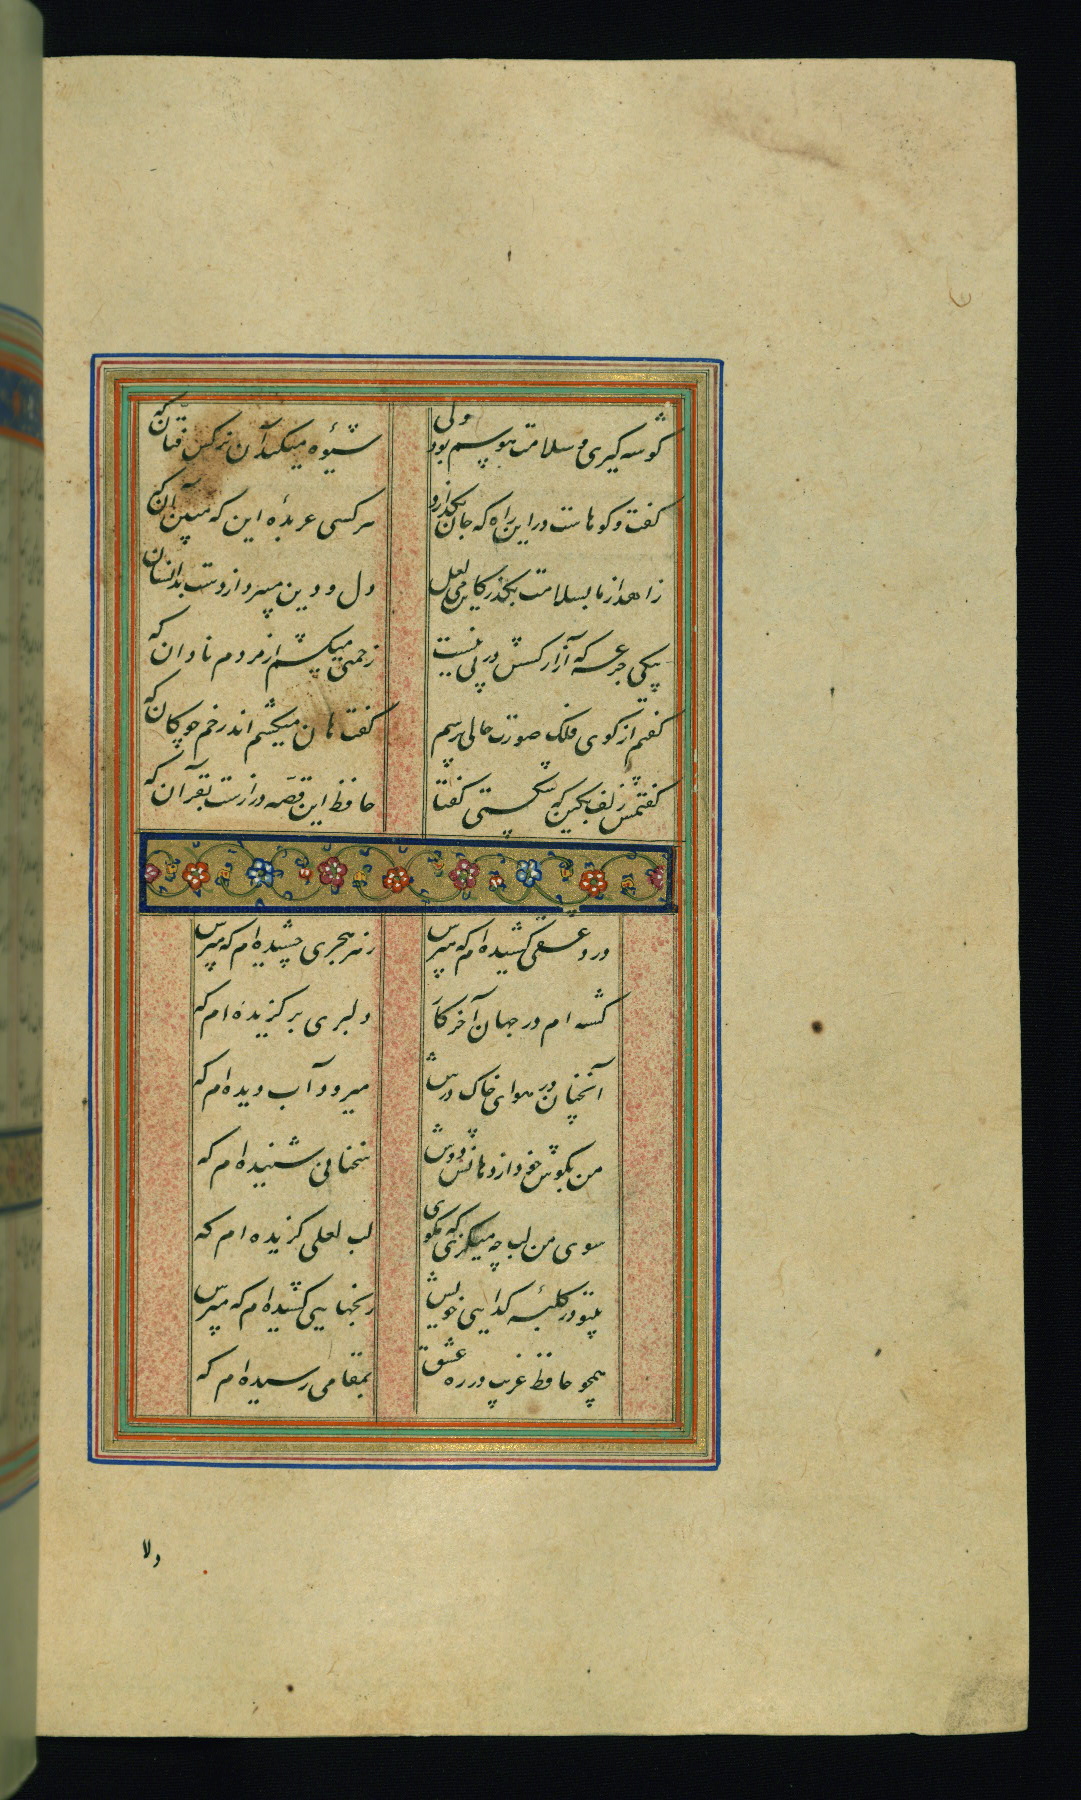 گوشه گیری و سلامت هوسم بود ولی شیوه میکند آن نرکس فتان که
گفت و گوهاست در این راه که جان بگذارد هر کسی عربده این که مبین آن که
زاهد از ما بسلامت بگذر کاین می لعل دل و دین میبرد از دست بدانسان
بیکی جرعه که آزار کسش در پی نیست زحمتی میکشم از مردم نادان که
گفتم از کوی فلک صورت حالی پرسم گفت هان میکشم اندر خم چوکان که
گفتمش زلف بکین که شکستی گفتا حافظ این قصه درازست بقرآن که
درد عشقی کشیده ام که مپرس زهر هجری چشیده ام که مپرس
گشته ام در جهان آخر کار دلبری برگزیده ام که
آنچنان در هوای خاک درش میرود آب دیده ام که
من بگوش خود از دهانش دوش سخنانی شنیده ام که
سوی من لب چه میگزی که مگوی لب لعلی گزیده ام که
بیتو در کلبه گدایی خویش رنجهایی کشیده ام که مپرس
همچو حافظ غریب در ره عشق بمقامی رسیده ام که
دلا